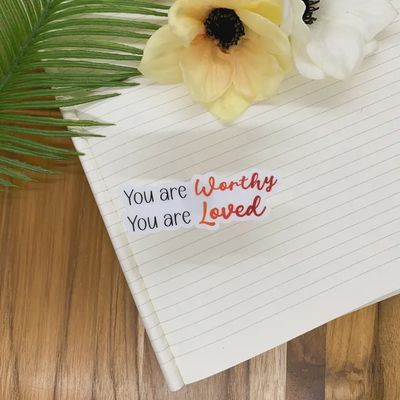 You are Worthy
You are Loved